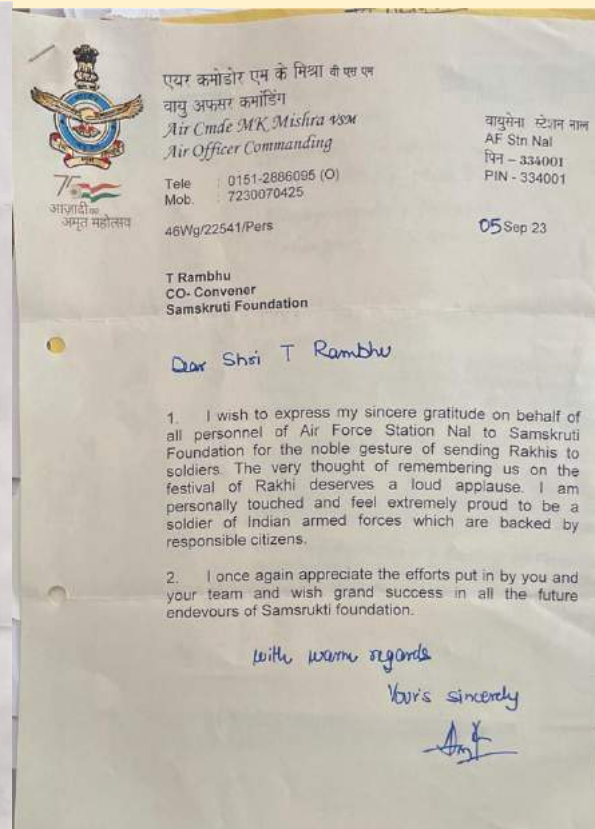 एयर कमोडोर एम के मिश्रा वी एस एम
वायु अफसर कमांडिंग
Air Cmde MK Mishra VSM
Air Officer Commanding
वायुसेना स्टेशन नाल
AF Stn Nal
पिन – 334001
PIN - 334001
Tele : 0151-2886095 (O)
Mob. : 7230070425
75
आज़ादी का
अमृत महोत्सव
46Wg/22541/Pers
05 Sep 23
T Rambhu
CO- Convener
Samskruti Foundation
Dear Shri T Rambhu
1. I wish to express my sincere gratitude on behalf of
all personnel of Air Force Station Nal to Samskruti
Foundation for the noble gesture of sending Rakhis to
soldiers. The very thought of remembering us on the
festival of Rakhi deserves a loud applause. I am
personally touched and feel extremely proud to be a
soldier of Indian armed forces which are backed by
responsible citizens.
2. I once again appreciate the efforts put in by you and
your team and wish grand success in all the future
endevours of Samsrukti foundation.
with warm regards
Your's sincerely